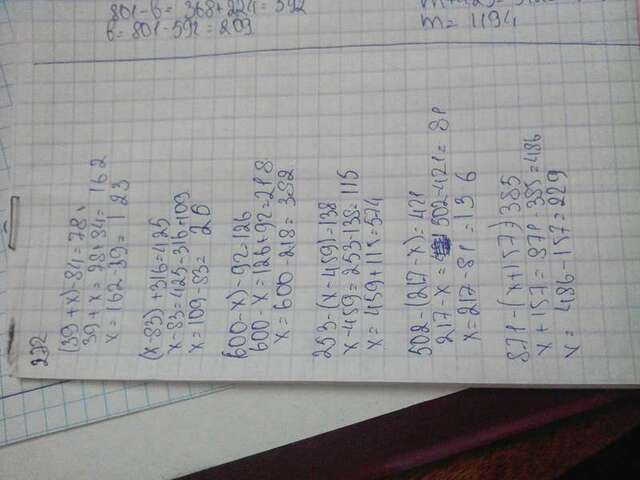 801-в= 368+224= 592
в= 801-592= 209
m= 1194
232
(39+x)-84=78
39+x= 78+84= 162
x= 162-39= 123
(x-83)+316=425
x-83=425-316=109
x=109-83= 26
(600-x)-92=126
600-x=126+92=218
x=600-218=382
253-(x-459)=138
x-459=253-138=115
x=459+115=574
502-(217-x)=421
217-x= 502-421= 81
x=217-81=136
871-(x+157)=385
x+157=871-385=486
x= 486-157=229